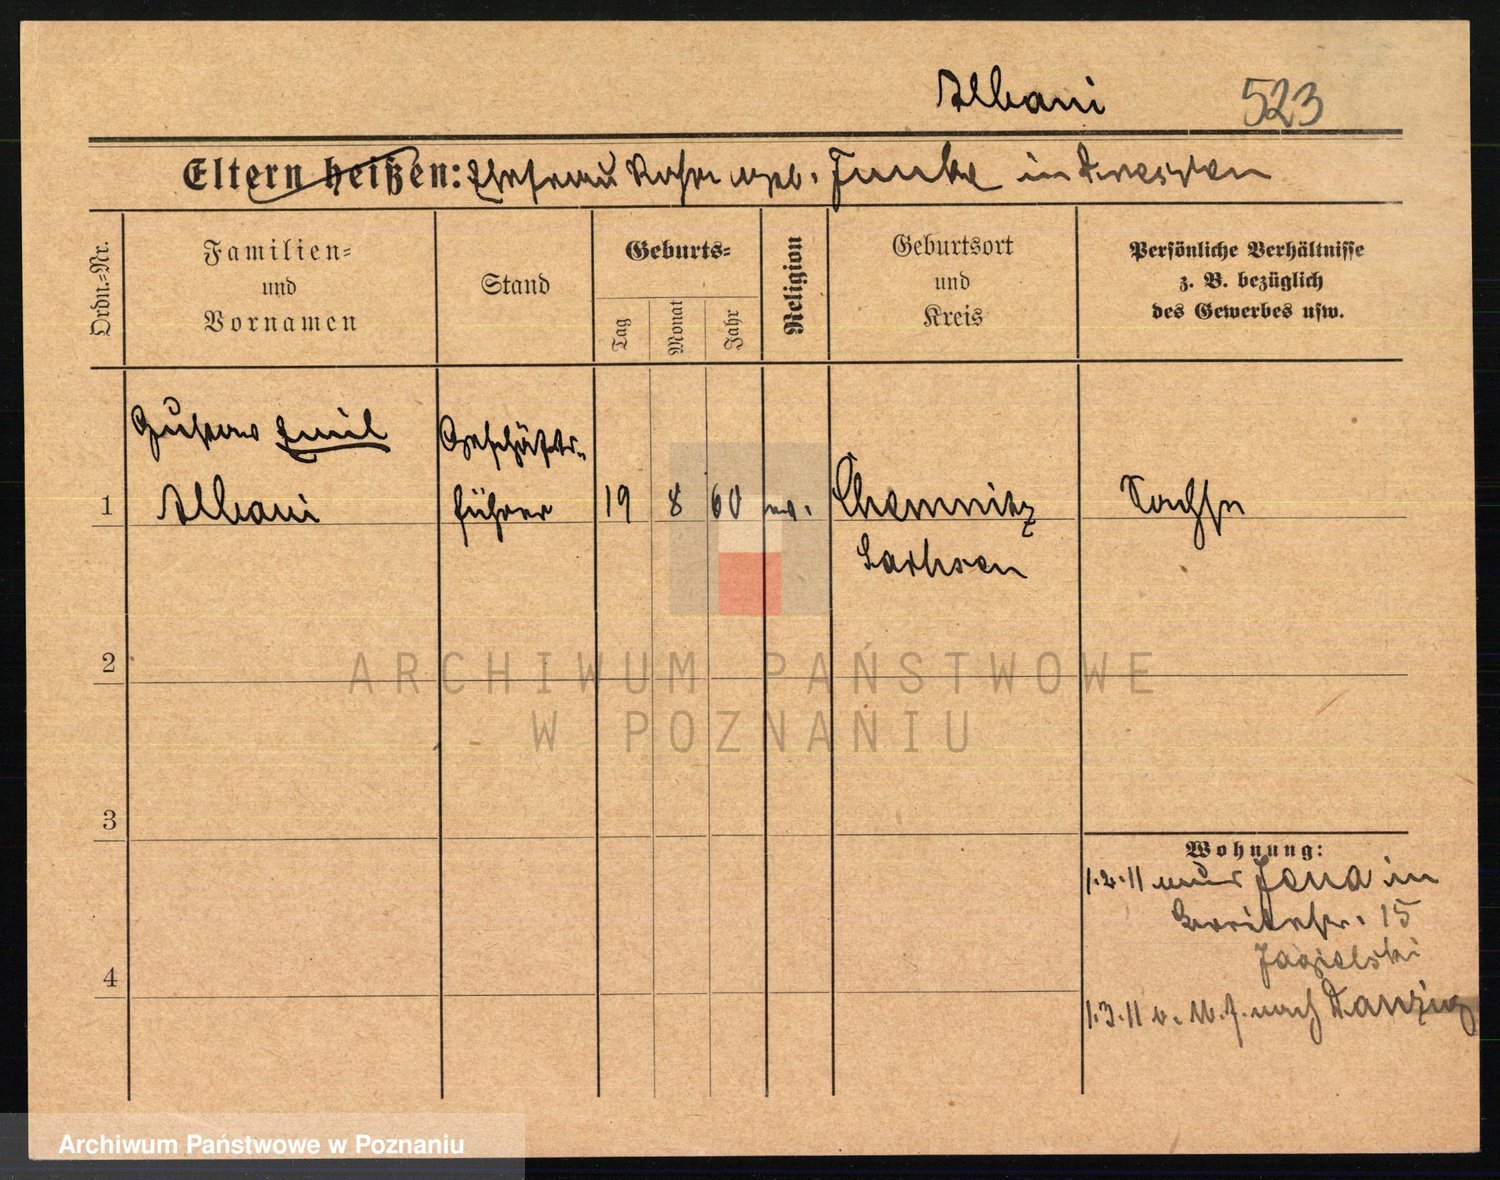 Albani 523
Eltern heißen: Ehefrau geb. Funke in Dresden
Ordn.-Nr.
Familien-
und
Vornamen
Stand
Geburts-
Tag
Monat
Jahr
Religion
Geburtsort
und
Kreis
Persönliche Verhältnisse
z. B. bezüglich
des Gewerbes usw.
Gustav Emil
Albani
Geschäfts-
führer
1
19 8 60 ev.
Chemnitz
Sachsen
Sachse
2
3
4
Wohnung:
1.2.11 Jena in
15
Jagielski
1.3.11 nach Danzig
ARCHIWUM PAŃSTWOWE
W POZNANIU
Archiwum Państwowe w Poznaniu